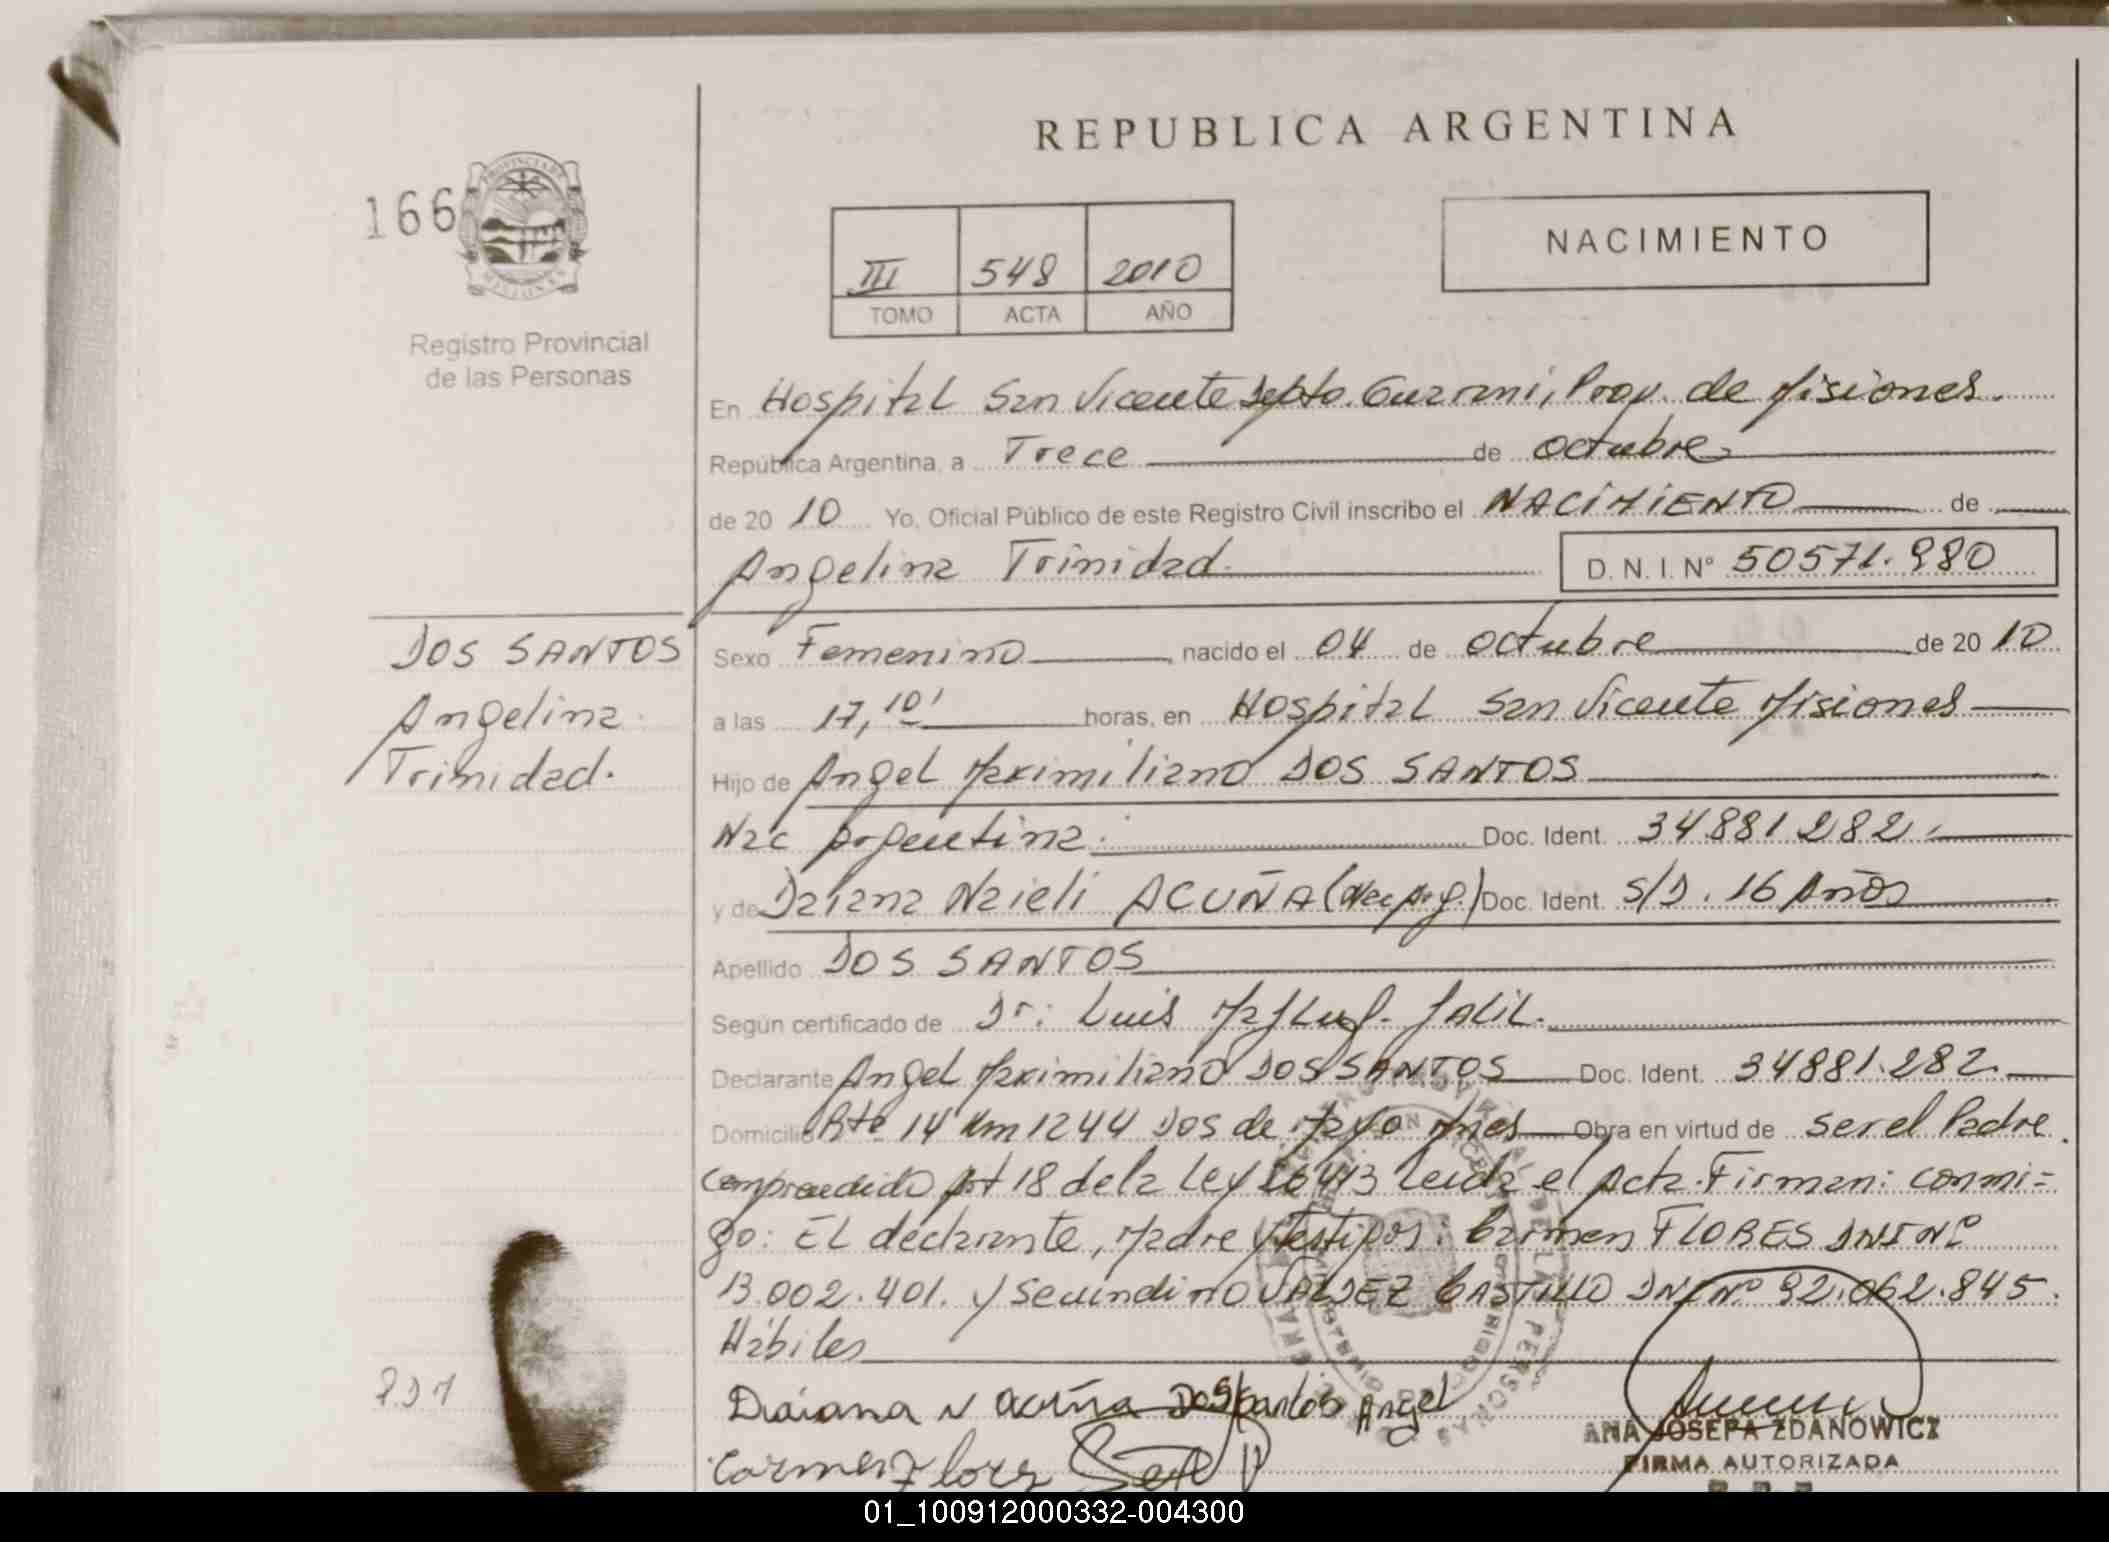 REPUBLICA ARGENTINA
166
NACIMIENTO
III 548 2010
TOMO ACTA AÑO
Registro Provincial
de las Personas
En Hospital San Vicente Depto. Guarani, Prov. de Misiones.
República Argentina, a Trece de octubre
de 20 10 Yo, Oficial Público de este Registro Civil inscribo el NACIMIENTO de
Angelina Trinidad. D. N. I. Nº 50571.980
DOS SANTOS
Angelina
Trinidad.
Sexo Femenino, nacido el 04 de octubre de 20 10
a las 17,10' horas, en Hospital San Vicente Misiones
Hijo de Angel Maximiliano DOS SANTOS
Nac Argentina. Doc. Ident. 34881282.
y de Daiana Naieli ACUÑA (Nac Arg.) Doc. Ident. S/D. 16 Años
Apellido DOS SANTOS
Según certificado de Dr: Luis
Declarante Angel Maximiliano DOS SANTOS Doc. Ident. 34881.282.
Domicilio Rta 14 Km 1244 Dos de Mayo Mnes Obra en virtud de ser el Padre.
Comprendido Art 18 de la Ley 26413 Leida el Acta. Firman: conmi=
go: El declarante, Madre y testigos: Carmen FLORES DNI Nº
13.002.401. y Secundino VALDEZ CASTILLO DNI Nº 92.062.845.
Hábiles
Daiana N Acuña Dos Santos Angel
Carmen Flores
ANA JOSEFA ZDANOWICZ
FIRMA AUTORIZADA
01_100912000332-004300